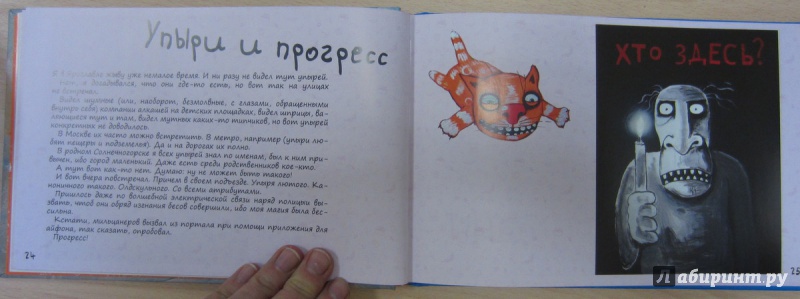 Упыри и прогресс
Я в Ярославле живу уже немалое время. И ни разу не видел тут упырей.
Нет, я догадывался, что они где-то есть, но вот так на улицах
не встречал.
Видел шумные (или, наоборот, безмолвные, с глазами, обращенными
внутрь себя) компании алкашей на детских площадках, видел шприцы, ва-
ляющиеся тут и там, видел мутных каких-то типчиков, но вот упырей
конкретных не доводилось.
В Москве их часто можно встретить. В метро, например (упыри лю-
бят пещеры и подземелья). Да и на дорогах их полно.
В родном Солнечногорске я всех упырей знал по именам, был к ним при-
вычен, ибо город маленький. Даже есть среди родственников кое-кто.
А тут вот как-то нет. Думаю: ну не может быть такого!
И вот вчера повстречал. Причем в своем подъезде. Упыря лютого. Ка-
ноничного такого. Олдскульного. Со всеми атрибутами.
Пришлось даже по волшебной электрической связи наряд полицьи вы-
звать, чтоб они обряд изгнания бесов совершили, ибо моя магия была бес-
сильна.
Кстати, мильцанеров вызвал из портала при помощи приложения для
айфона, так сказать, опробовал.
Прогресс!
24
ХТО ЗДЕСЬ?
25
Лабиринт.ру